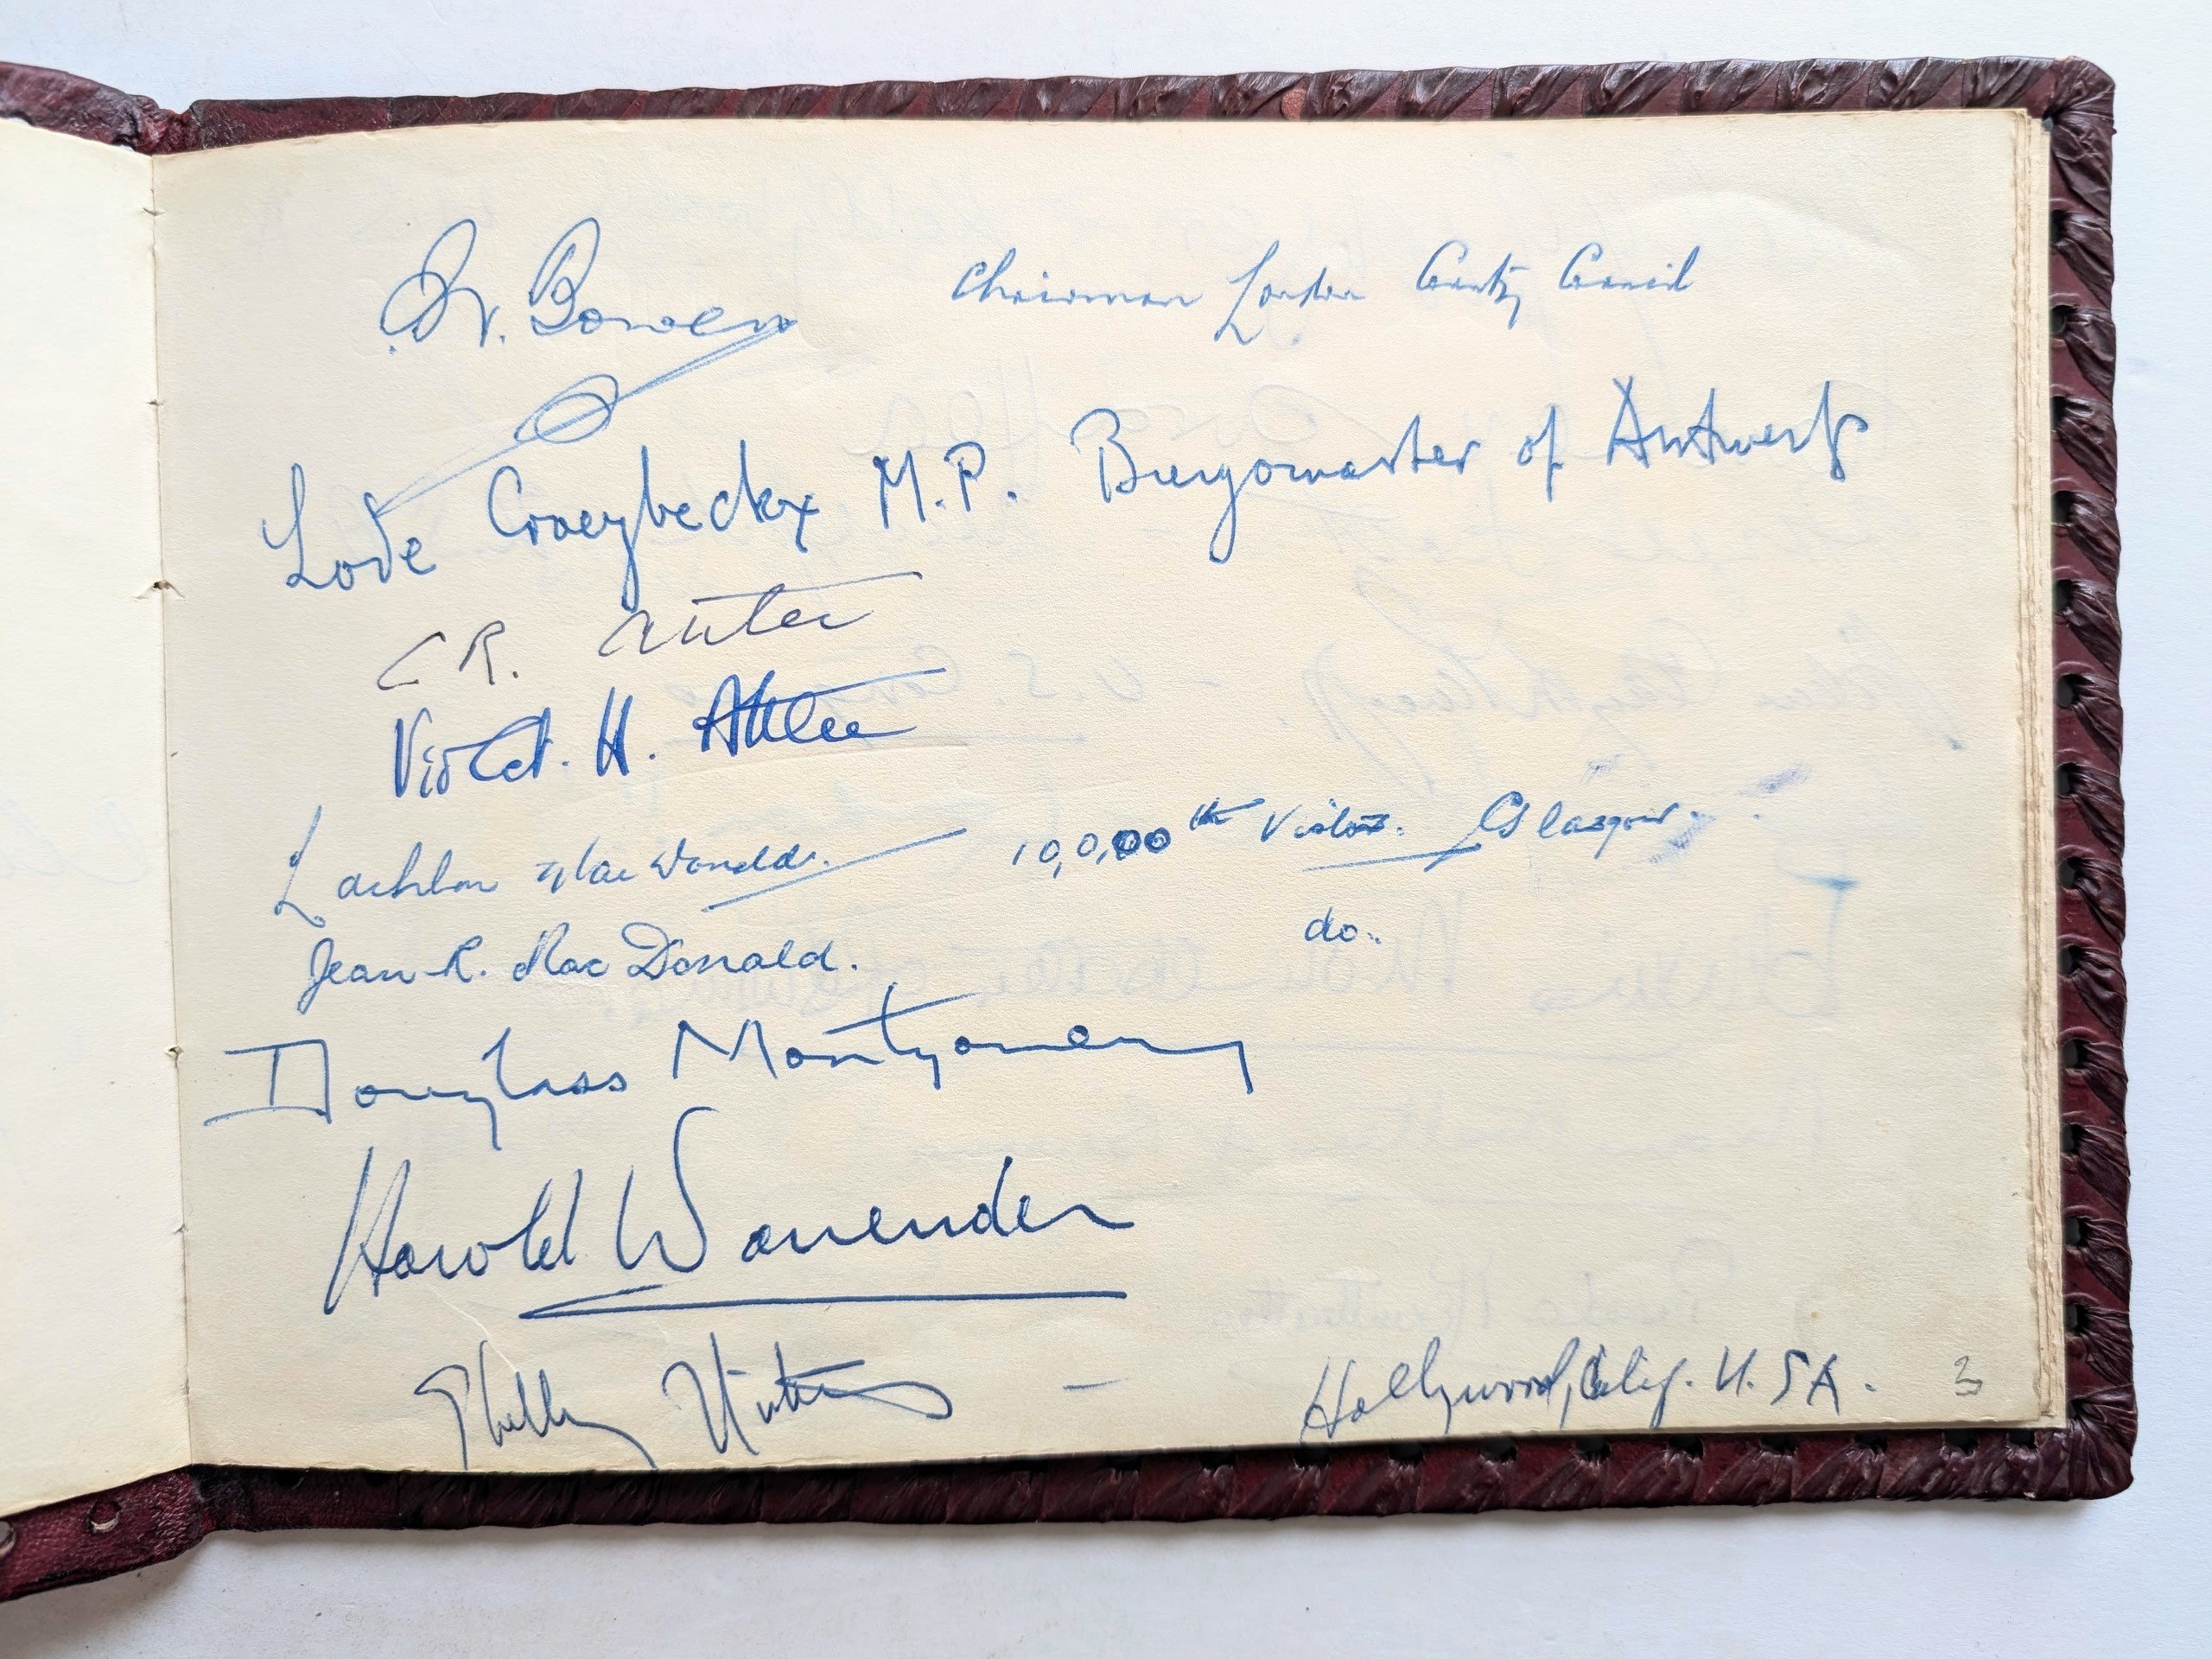 J. W. Bowen Chairman London County Council
Lode Craeybeckx M.P. Burgomaster of Antwerp
C R. Attlee
Violet. H. Attlee
Lachlan MacDonald. 10,0,000th Visitor. Glasgow.
Jean R. MacDonald. do..
Douglass Montgomery
Harold Warrender
Shelley Winters — Hollywood, Calif. U. S A.
3